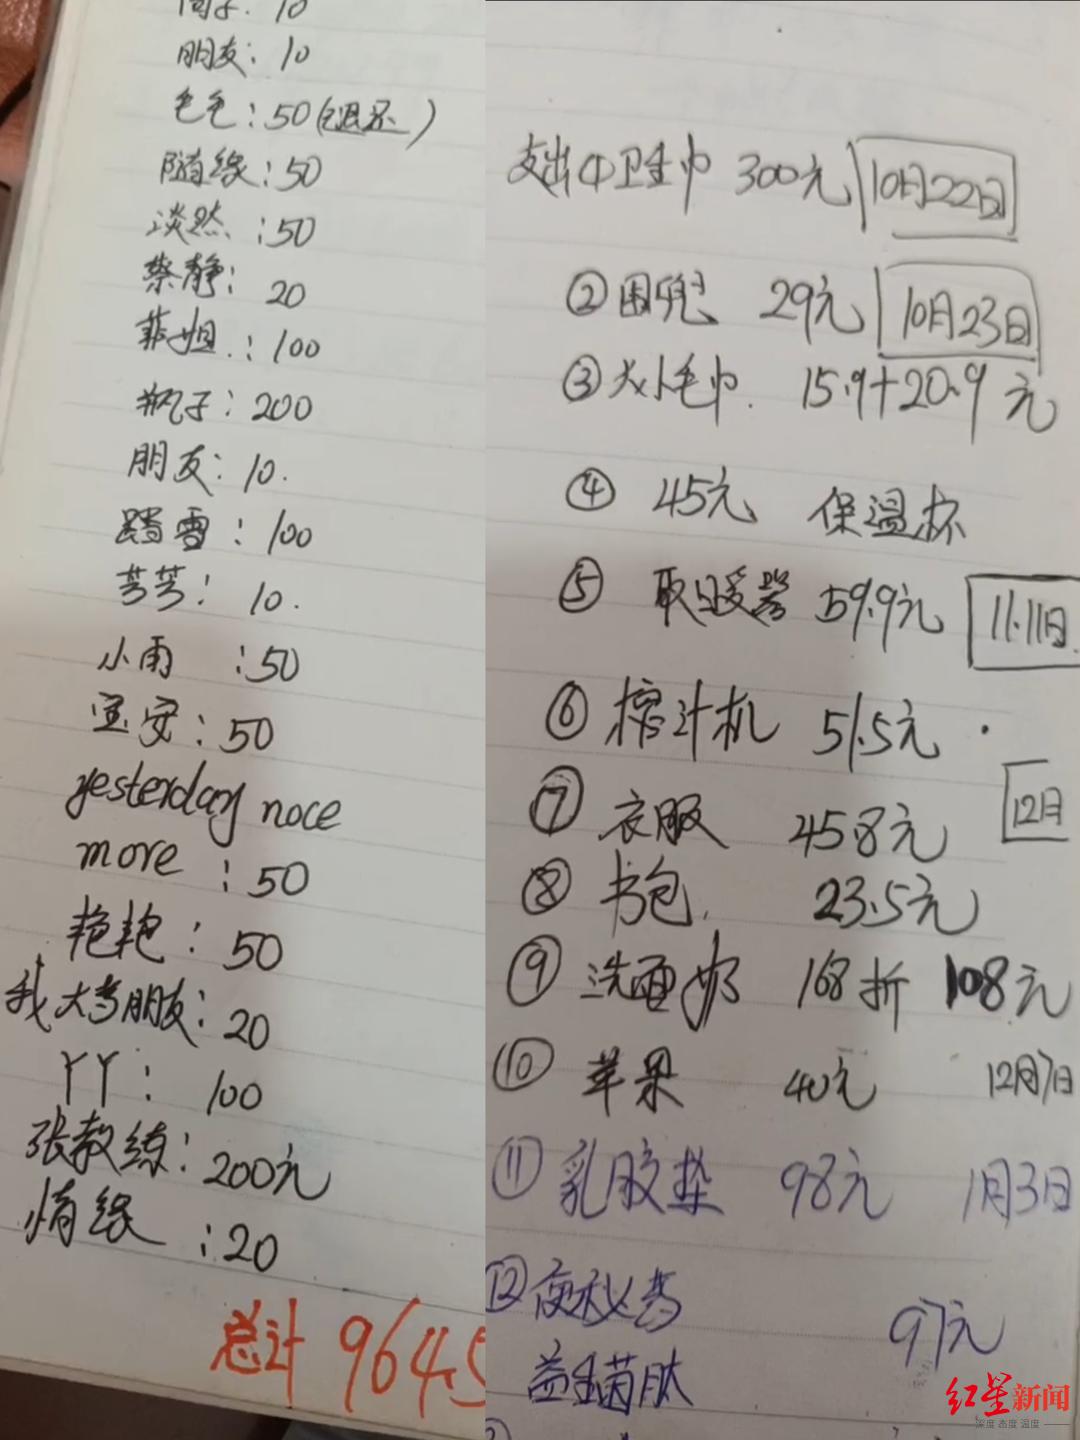 朋友：10
毛毛：50(退还)
随缘：50
淡然：50
蔡静：20
菲姐：100
瓶子：200
朋友：10.
踏雪：100
芳芳：10.
小雨：50
宝安：50
yesterday noce
more：50
艳艳：50
我大哥朋友：20
丫丫：100
张教练：200元
情缘：20
总计 9645
支出①卫生巾 300元 10月22日
②围兜 29元 10月23日
③大小毛巾. 15.9+20.9元
④ 45元 保温杯
⑤ 取暖器 59.9元 11.11日.
⑥ 榨汁机 51.5元
12月
⑦ 衣服 458元
⑧ 书包. 23.5元
⑨ 洗面奶 168折 108元
⑩ 苹果 40元 12月7日
⑪ 乳胶垫 98元 1月3日
⑫ 97元
益生菌肽
红星新闻
深度 态度 温度